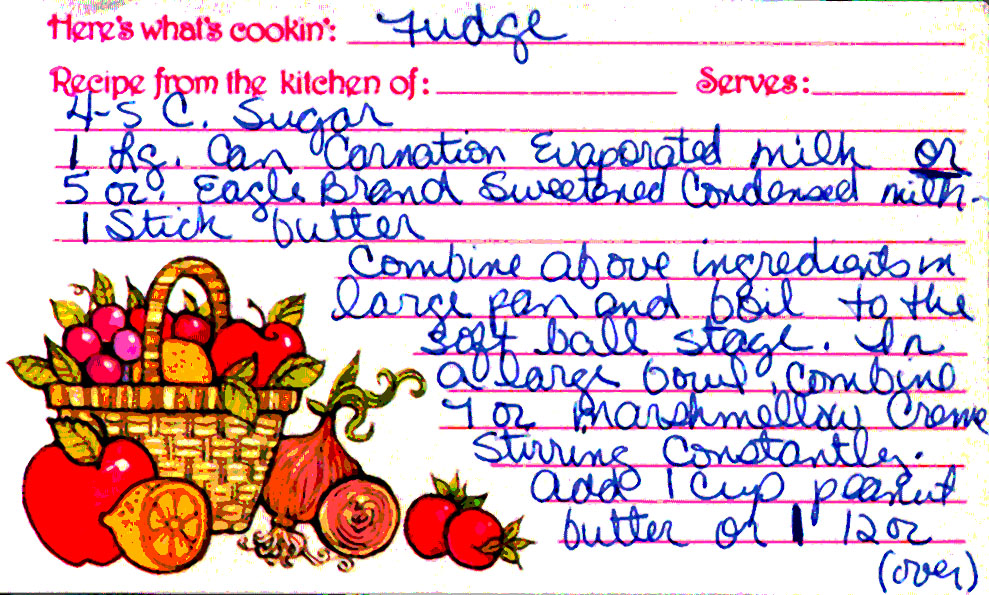 Here's what's cookin': Fudge
Recipe from the kitchen of: Serves:
4-5 C. Sugar
1 Lg. Can Carnation Evaporated milk or
5 oz. Eagle Brand Sweetened Condensed milk-
1 Stick butter
Combine above ingredients in
large pan and boil to the
soft ball stage. In
a large bowl, combine
7 oz Marshmellow Creme
stirring constantly.
add 1 cup peanut
butter or 1 12 oz
(over)